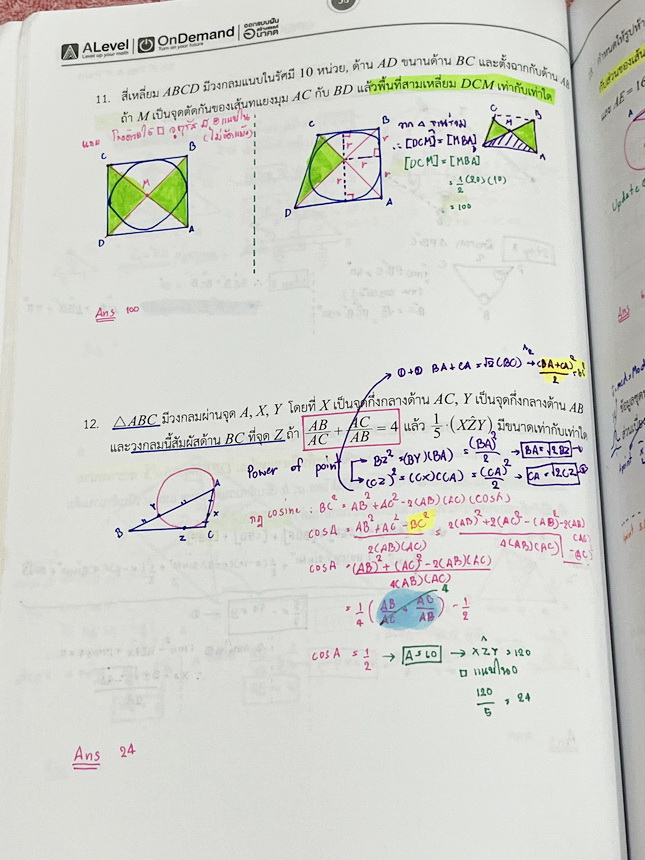 ALevel
Level up your math
OnDemand
Turn on your future
ออกแบบฝัน
อนาคต
11. สี่เหลี่ยม ABCD มีวงกลมแนบในรัศมี 10 หน่วย, ด้าน AD ขนานด้าน BC และตั้งฉากกับด้าน AB
ถ้า M เป็นจุดตัดกันของเส้นทแยงมุม AC กับ BD แล้วพื้นที่สามเหลี่ยม DCM เท่ากับเท่าใด
∴ [DCM] = [MBA]
[DCM] = [MBA]
= 1/2 (20)(10)
= 100
C B M D A
C B r r r r D A
C B M A
Ans 100
①+② BA+CA = √2(BC) → (BA+CA)²/2 = BC²
12. △ABC มีวงกลมผ่านจุด A, X, Y โดยที่ X เป็นจุดกึ่งกลางด้าน AC, Y เป็นจุดกึ่งกลางด้าน AB
และวงกลมนี้สัมผัสด้าน BC ที่จุด Z ถ้า AB/AC + AC/AB = 4 แล้ว 1/5 · (XẐY) มีขนาดเท่ากับเท่าใด
Power of point
BZ² = (BY)(BA) = (BA)²/2 → BA = √2BZ ①
(CZ)² = (CX)(CA) = (CA)²/2 → CA = √2CZ ②
A Y X B Z C
กฎ cosine : BC² = AB² + AC² - 2(AB)(AC)(COSA)
COSA = AB² + AC² - BC² / 2(AB)(AC) = 2(AB)² + 2(AC)² - (AB)² - 2(AB)(AC) - (AC)² / 4(AB)(AC)
COSA = (AB)² + (AC)² - 2(AB)(AC) / 4(AB)(AC)
= 1/4 (AB/AC + AC/AB) - 1/2
4
COSA = 1/2 → A = 60 → XẐY = 120
120/5 = 24
Ans 24